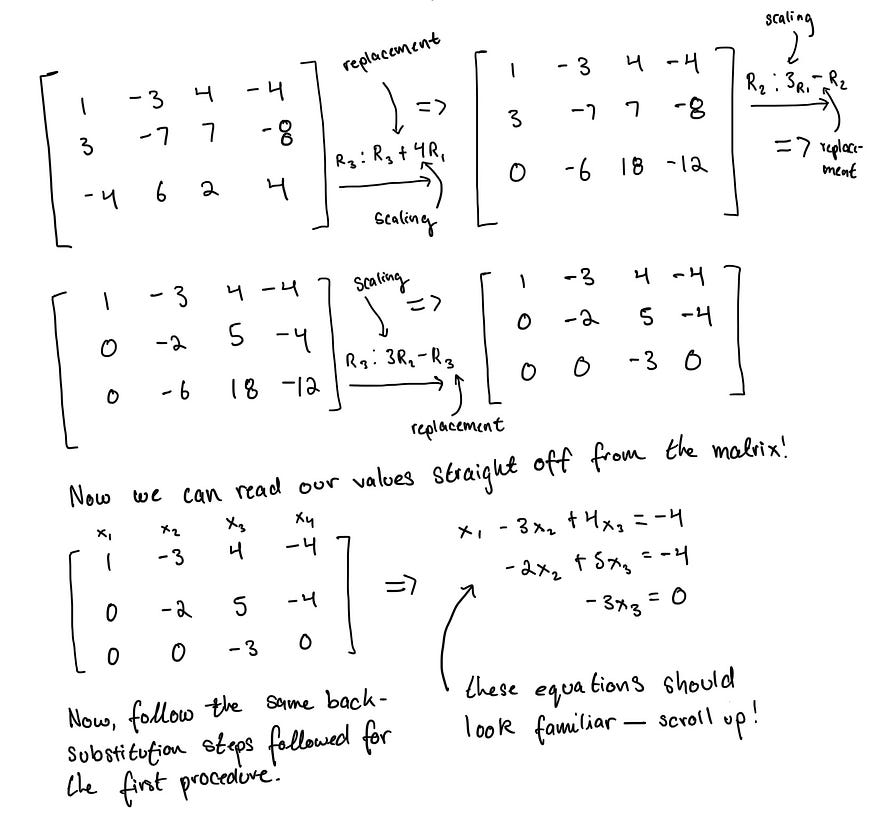 replacement
scaling
1 -3 4 -4
3 -7 7 -8
-4 6 2 4
R₃ : R₃ + 4R₁
=>
scaling
1 -3 4 -4
3 -7 7 -8
0 -6 18 -12
R₂ : 3R₁ - R₂
=> replace-
ment
1 -3 4 -4
0 -2 5 -4
0 -6 18 -12
scaling
=>
R₃ : 3R₂ - R₃
replacement
1 -3 4 -4
0 -2 5 -4
0 0 -3 0
Now we can read our values straight off from the matrix!
x₁ x₂ x₃ x₄
1 -3 4 -4
0 -2 5 -4
0 0 -3 0
=>
x₁ - 3x₂ + 4x₃ = -4
-2x₂ + 5x₃ = -4
-3x₃ = 0
Now, follow the same back-
substitution steps followed for
the first procedure.
these equations should
look familiar — scroll up!